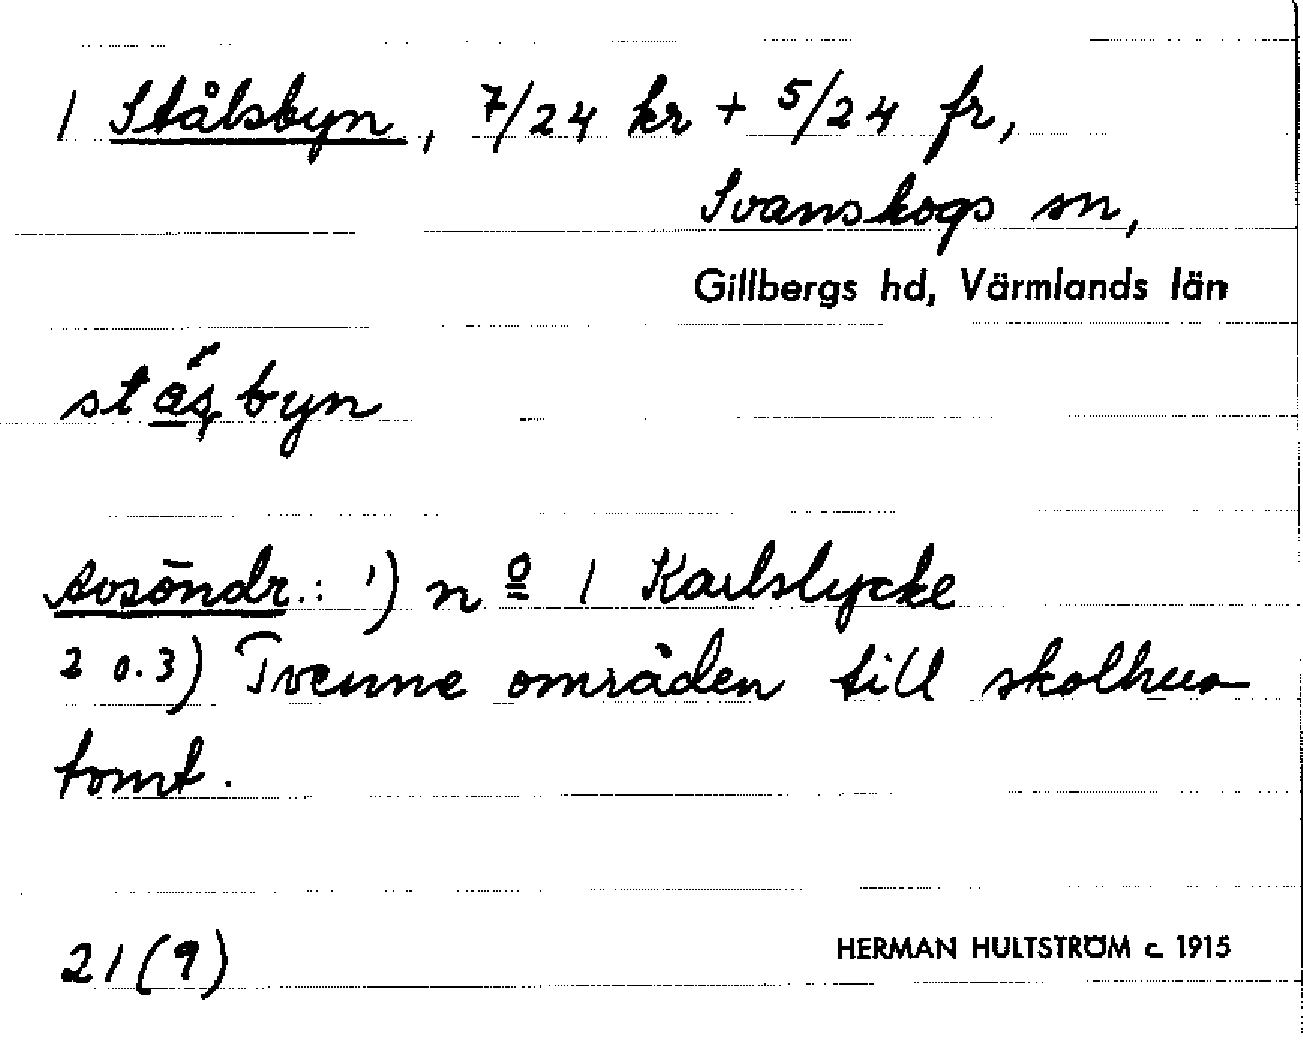 1 Stålsbyn, 7/24 kr + 5/24 fr,
Svanskogs sn,
Gillbergs hd, Värmlands län
byn
Avsöndr.: 1) nº 1 Karlslycke
2 o. 3) Tvenne områden till skolhus
tomt.
21(9)
HERMAN HULTSTRÖM c. 1915